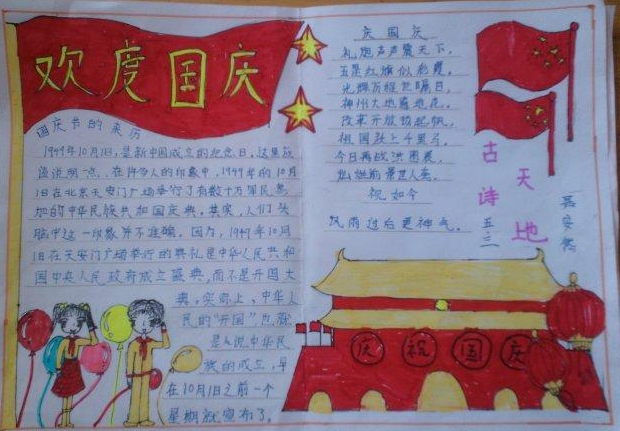 欢度国庆
国庆节的来历
1949年10月1日,是新中国成立的纪念日。这里应
该说明一点,在许多人的印象中,1949年的10月
1日在北京天安门广场举行了有数十万军民参
加的中华民族共和国庆典。其实,人们头
脑中这一印象并不准确。因为,1949年10月
1日在天安门广场举行的典礼是中华人民共和
国中央人民政府成立盛典,而不是开国大
典。实际上,中华人
民的“开国”,也就
是人说中华民
族的成立,早
在10月1日之前一个
星期就宣布了。
庆国庆
礼炮声声震天下,
五星红旗似彩霞。
光辉历程世瞩目,
神州大地遍地花。
改革开放扬起帆,
祖国跃上千里马。
今日再战洪图展,
祝如今
风雨过后更神气。
古诗
天地
五.三
庆祝国庆